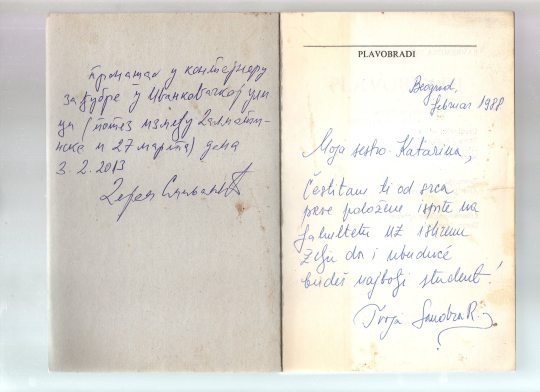 Пронашао у контејнеру
за ђубре у Иванковачкој ули
ци (потез између Далматин-
ске и 27 марта) дана
3.2.2013
PLAVOBRADI
Beograd,
februar 1988
Moja sestro Katarina,
Čestitam ti od srca
prve položene ispite na
fakultetu uz iskrenu
želju da i ubuduće
budeš najbolji student!
Tvoja Sandra R.